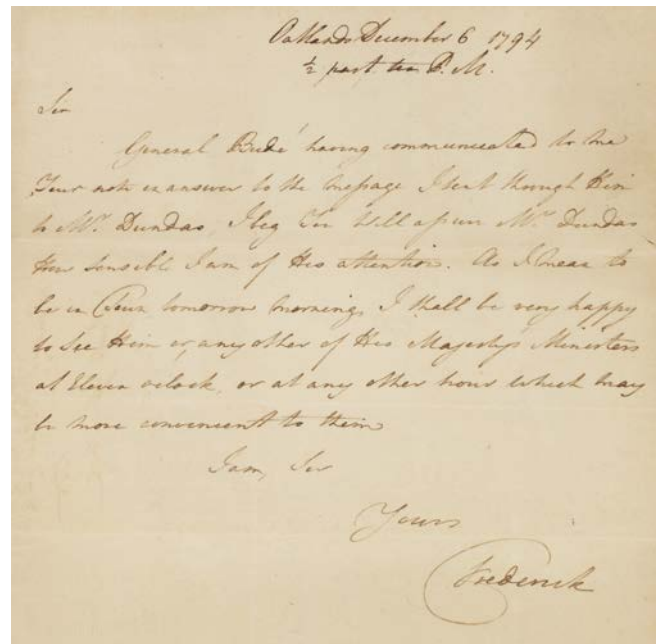 Oatlands December 6 1794
½ past ten P.M.
Sir
General Budé having communicated to me
Your note in answer to the message I sent through Him
to Mr. Dundas, I beg You will assure Mr. Dundas
How sensible I am of His attention. As I mean to
be in Town tomorrow morning, I shall be very happy
to see Him or any other of His Majesty's Ministers
at Eleven o'clock, or at any other hour which may
be more convenient to them
I am, Sir
Yours
Frederick